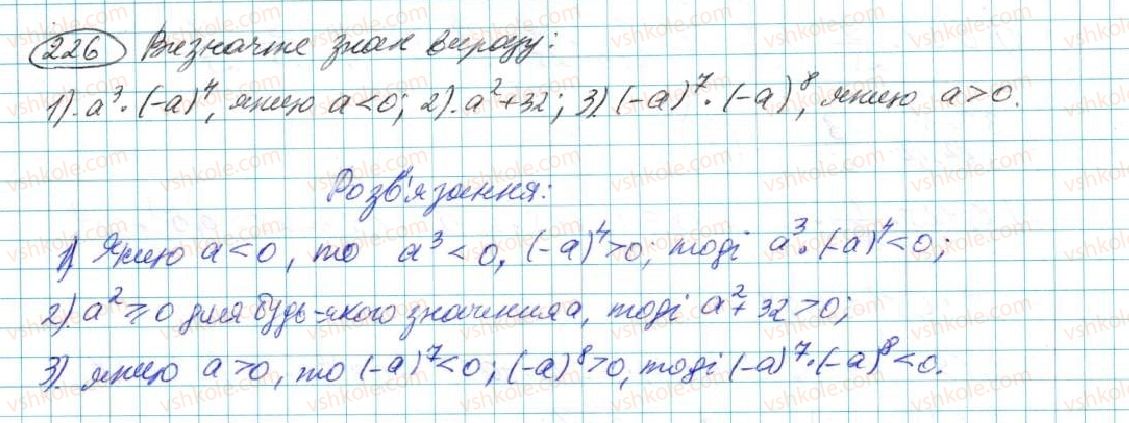 226 Визначте знак виразу:
1). a³·(-a)⁴, якщо a<0; 2). a²+32; 3). (-a)⁷·(-a)⁸, якщо a>0.
Розв'язання:
1) Якщо a<0, то a³<0, (-a)⁴>0; тоді a³·(-a)⁴<0;
2). a²≥0 для будь-якого значення a, тоді a²+32>0;
3). якщо a>0, то (-a)⁷<0; (-a)⁸>0, тоді (-a)⁷·(-a)⁸<0.
vshkole.com